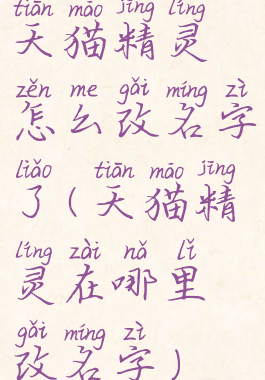 tiān māo jīng líng
天猫精灵
zěn me gǎi míng zì
怎么改名字
liǎo tiān māo jīng
了(天猫精
líng zài nǎ lǐ
灵在哪里
gǎi míng zì
改名字)